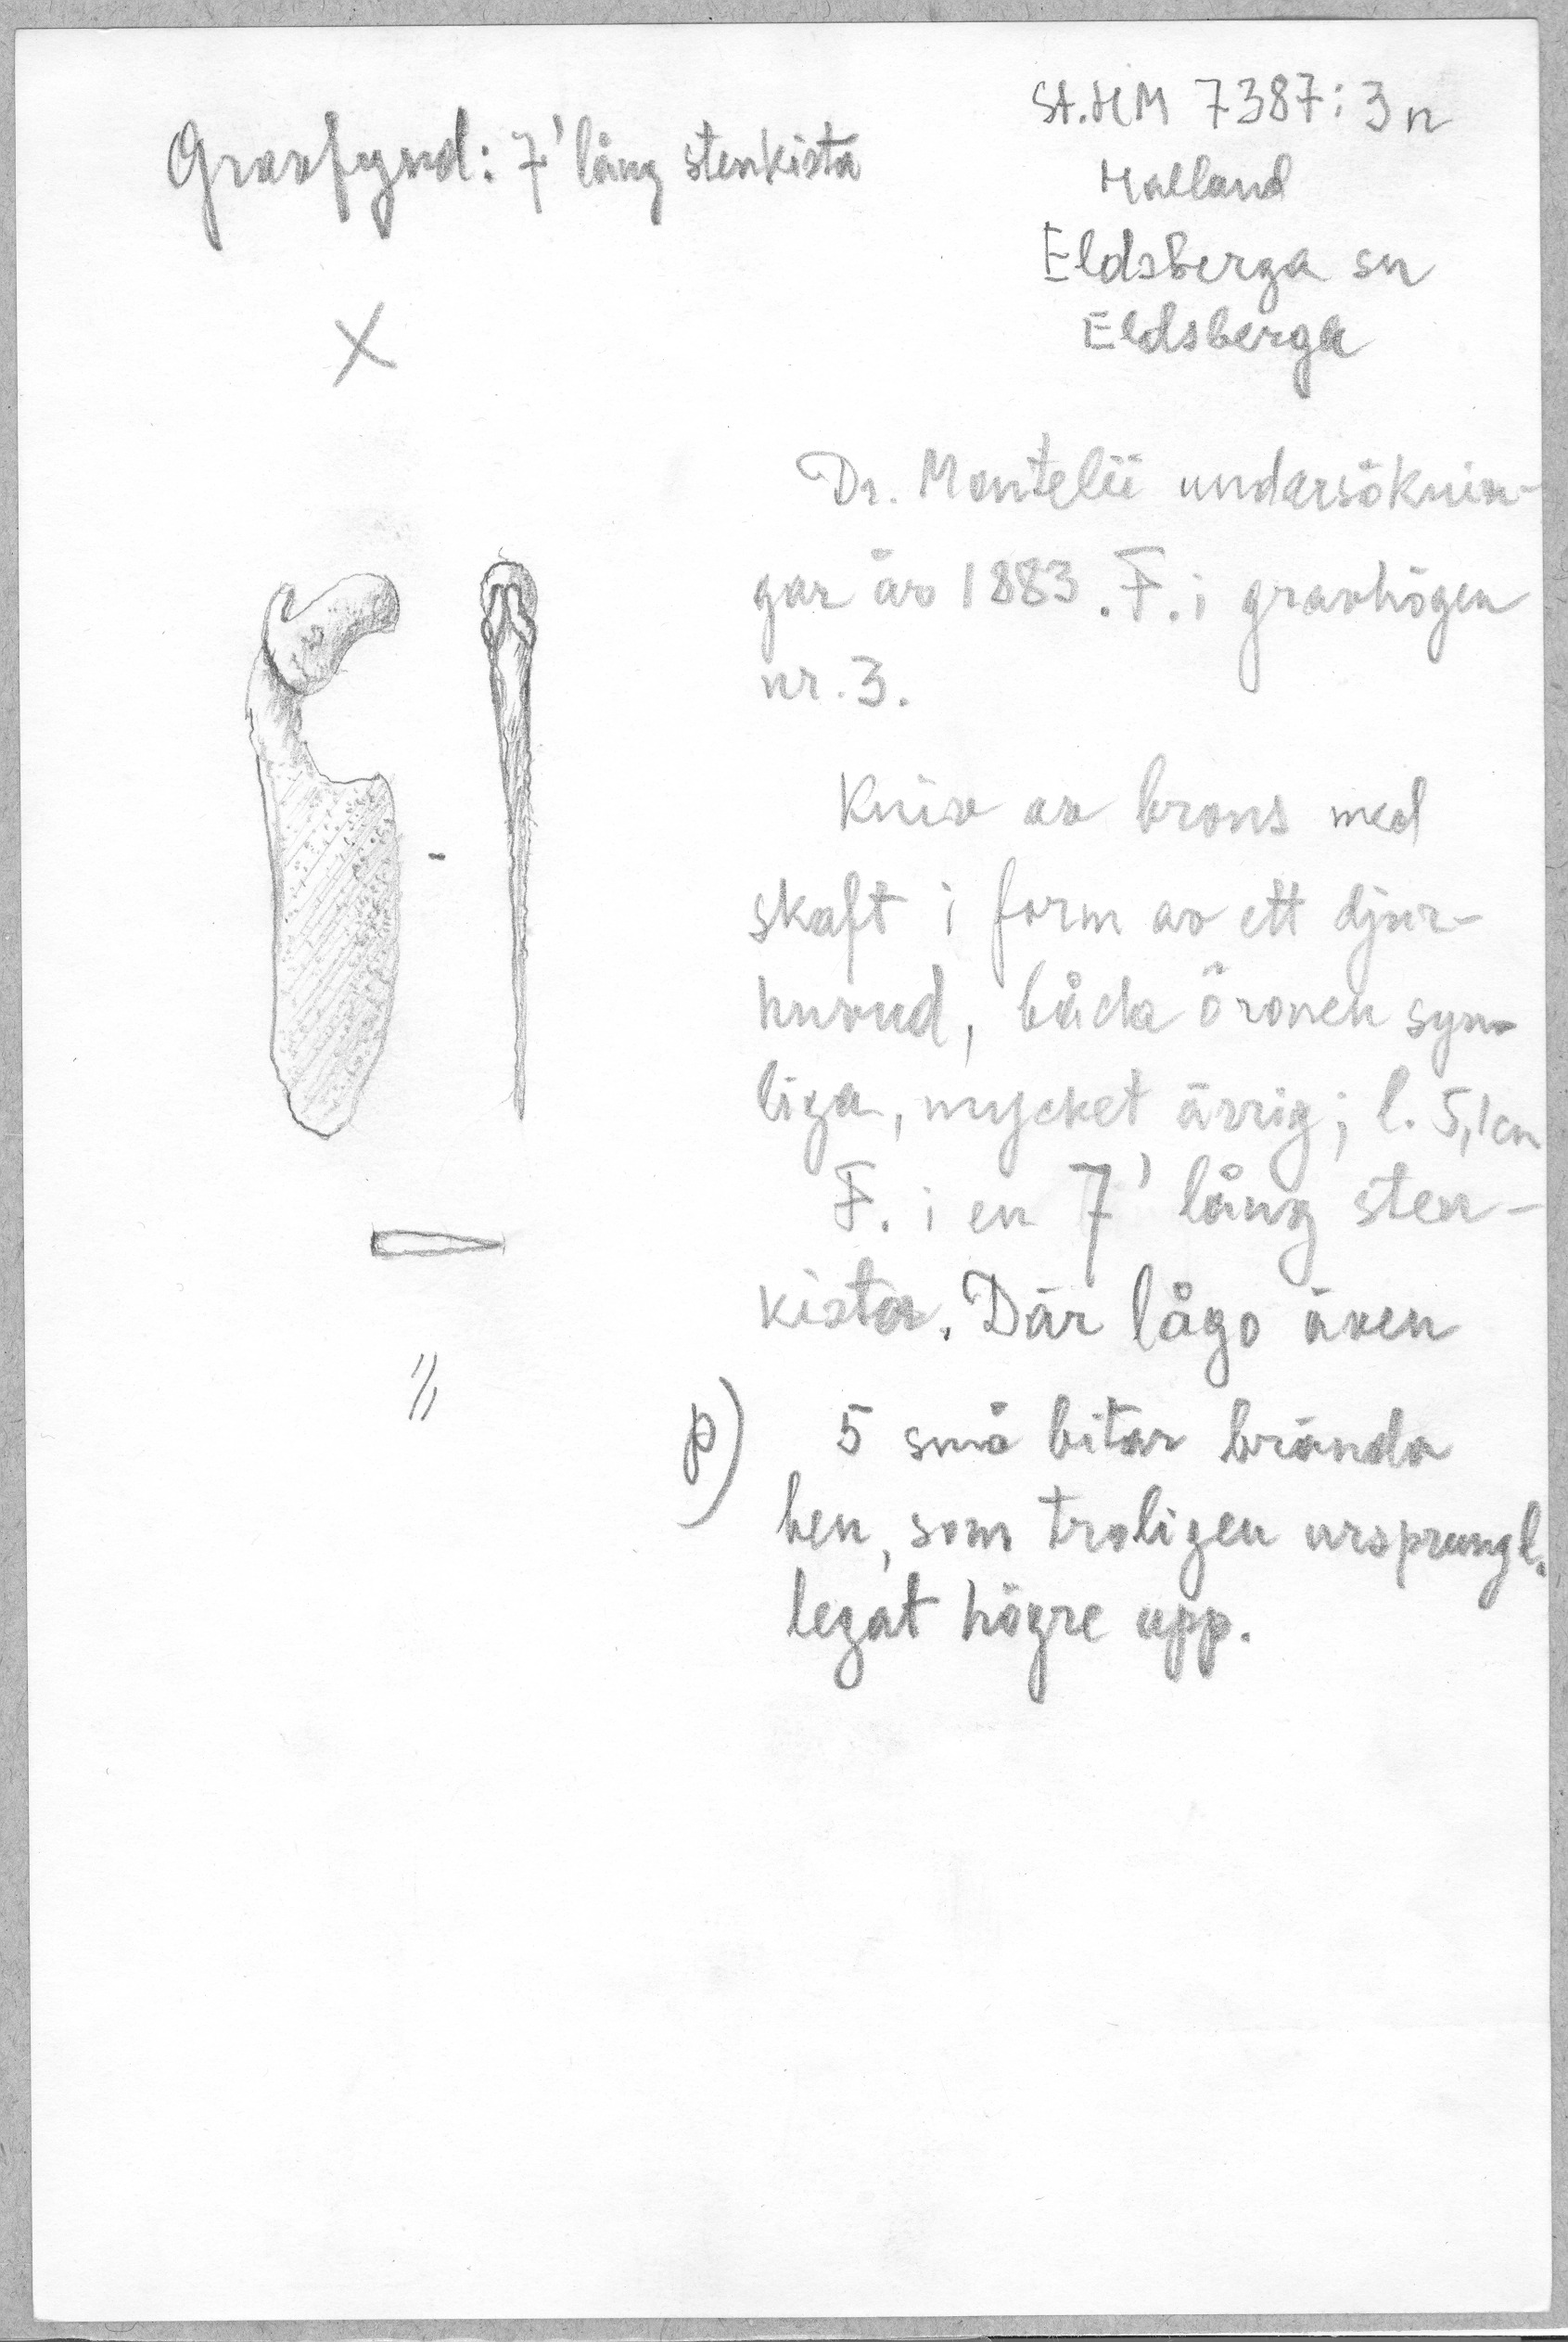 St.HM 7387:3n
Gravfynd: 7' lång stenkista
Halland
Eldsberga sn
Eldsberga
X
Dr. Montelii undersöknin-
gar år 1883. F. i gravhögen
nr. 3.
Kniv av brons med
skaft i form av ett djur-
huvud, båda öronen syn-
liga, mycket ärrig; l. 5,1cm
F. i en 7' lång sten-
kista. Där lågo även
p) 5 små bitar brända
ben, som troligen ursprungl.
legat högre upp.